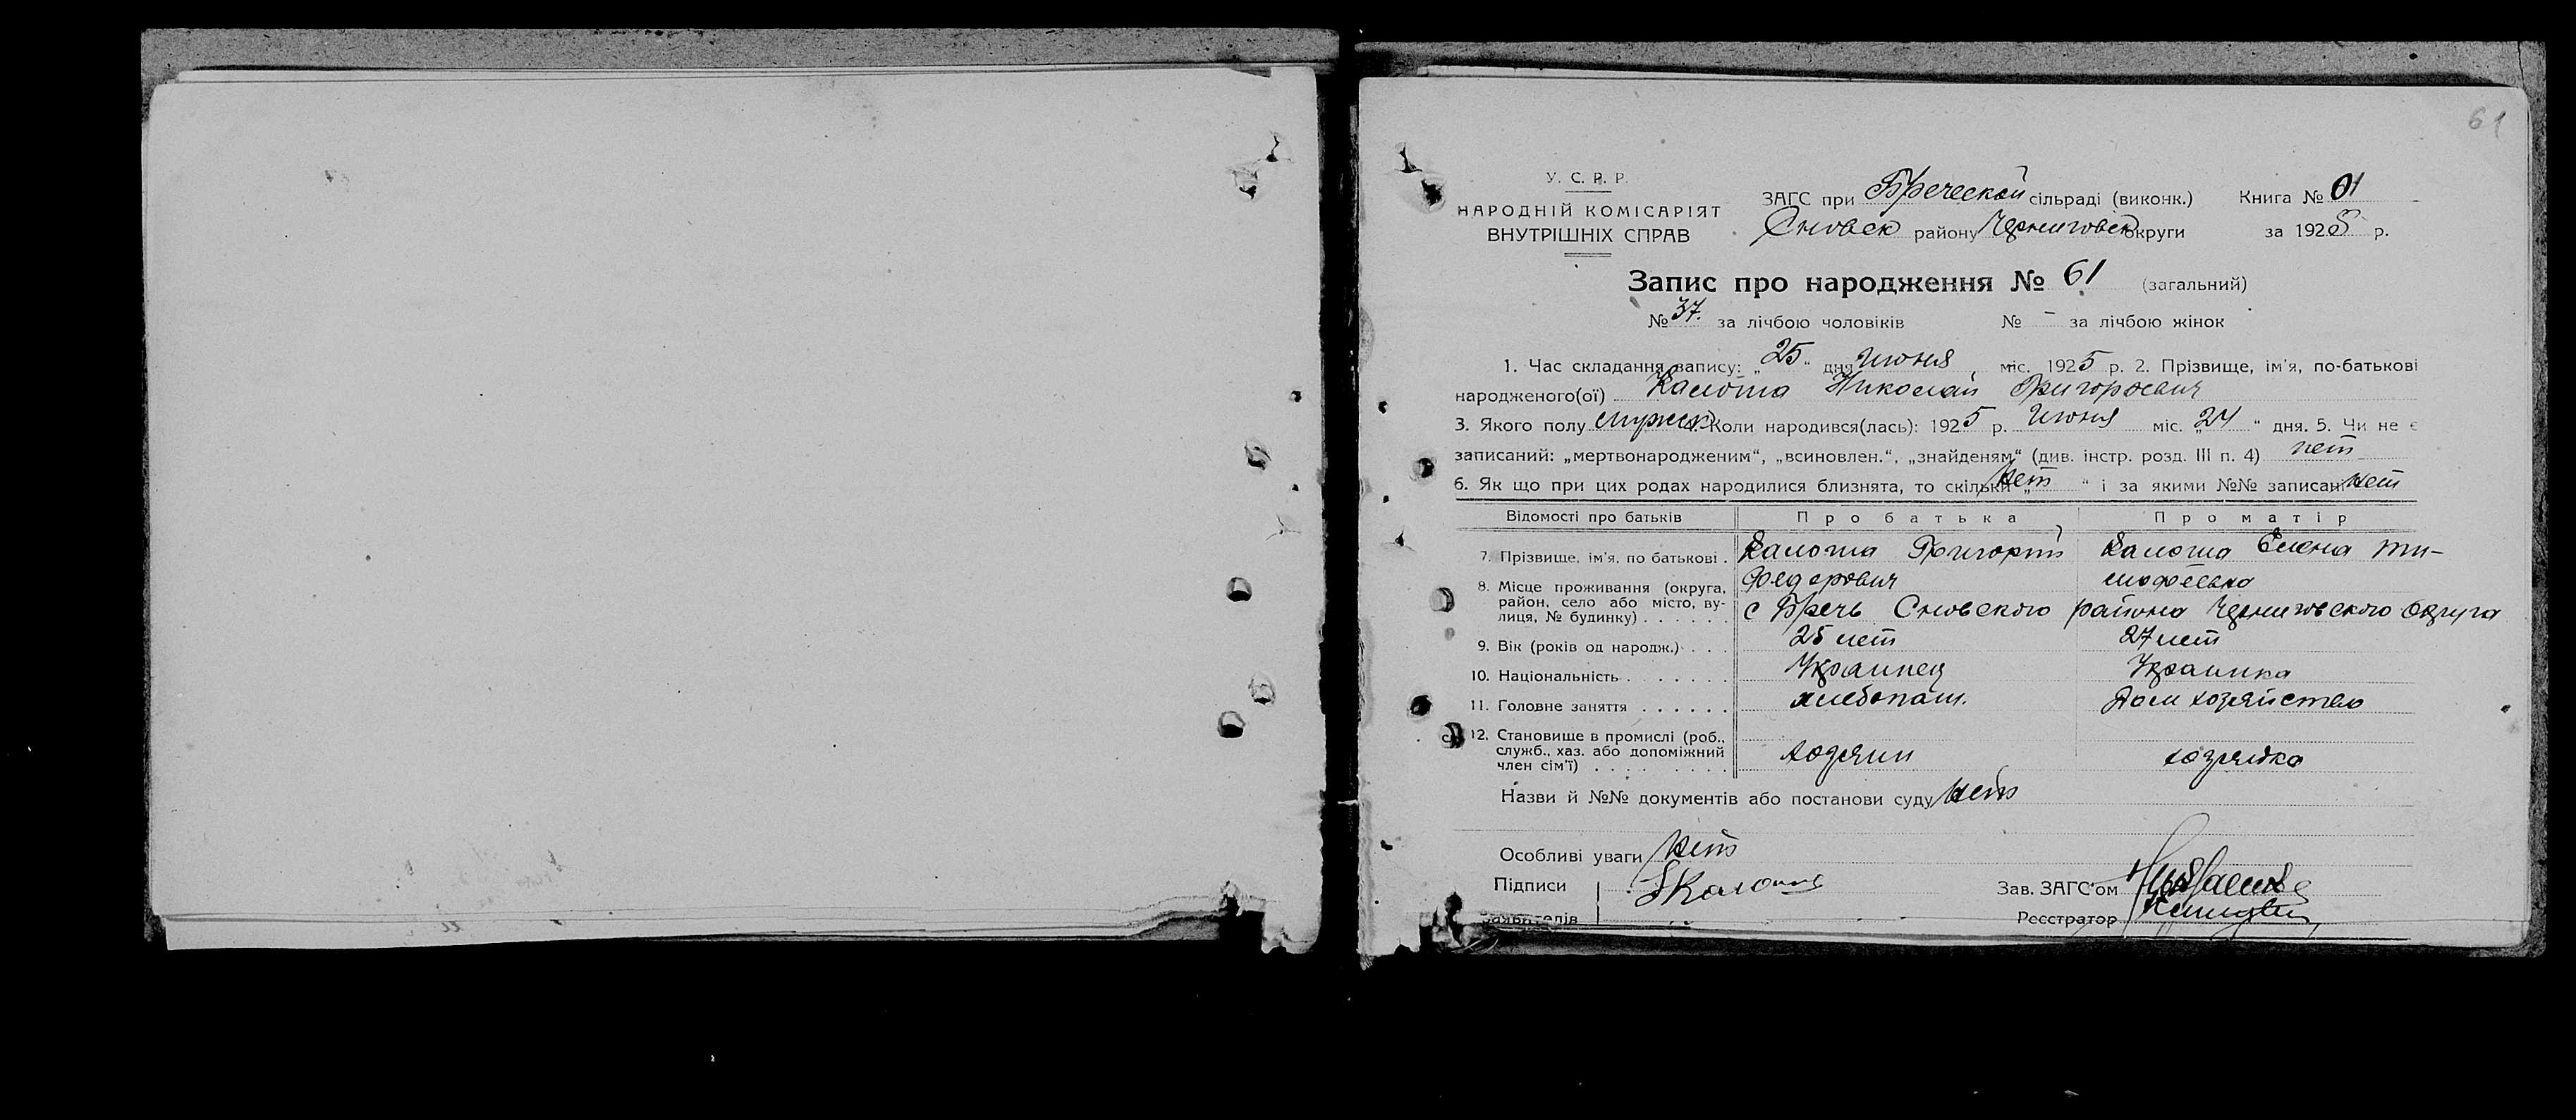 61
У. С. Р. Р.
НАРОДНІЙ КОМІСАРІЯТ
ВНУТРІШНІХ СПРАВ
ЗАГС при Бреческой сільраді (виконк.) Книга № 01
Сновск району Черниговск округи за 1925 р.
Запис про народження № 61 (загальний)
№ 37. за лічбою чоловіків № - за лічбою жінок
1. Час складання запису: „25“ дня Июня міс. 1925 р. 2. Прізвище, ім'я, по-батькові
народженого(ої) Калоша Николай Григорьевич
3. Якого полу мужск Коли народився(лась): 1925 р. Июня міс. „24“ дня. 5. Чи не є
записаний: „мертвонародженим“, „всиновлен.“, „знайденям“ (див. інстр. розд. III п. 4) нет
6. Як що при цих родах народилися близнята, то скільки „нет“ і за якими №№ записані нет
Відомості про батьків Про батька Про матір
7. Прізвище, ім'я, по батькові . Калоша Григорий Калоша Елена Ти-
Федорович мофеевна
8. Місце проживання (округа, район, село або місто, ву-
лиця, № будинку) . . . . . . с Бречь Сновского района Черниговского Округа
9. Вік (років од народж.) . . . 25 лет 27 лет
10. Національність . . . . . . . Украинец Украинка
11. Головне заняття . . . . . . хлебопаш. Дом хозяйство
12. Становище в промислі (роб.,
служб., хаз. або допоміжний
член сім'ї) . . . . . . . . хозяин хозяйка
Назви й №№ документів або постанови суду нет
Особливі уваги нет
Підписи Калоша Зав. ЗАГС'ом
заявителів Реєстратор